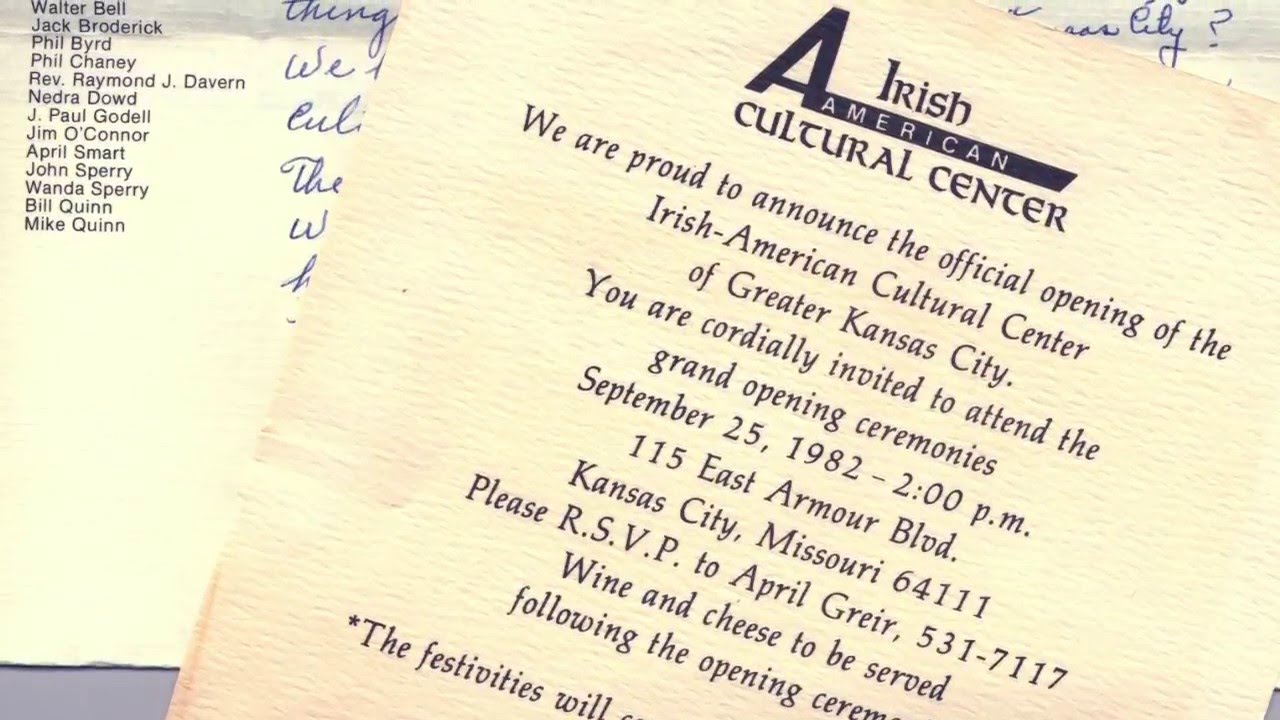 Walter Bell
Jack Broderick
Phil Byrd
Phil Chaney
Rev. Raymond J. Davern
Nedra Dowd
J. Paul Godell
Jim O'Connor
April Smart
John Sperry
Wanda Sperry
Bill Quinn
Mike Quinn
thing
We
culi
The
W
h
City ?
Irish
AMERICAN
CULTURAL CENTER
We are proud to announce the official opening of the
Irish-American Cultural Center
of Greater Kansas City.
You are cordially invited to attend the
grand opening ceremonies
September 25, 1982 – 2:00 p.m.
115 East Armour Blvd.
Kansas City, Missouri 64111
Please R.S.V.P. to April Greir, 531-7117
Wine and cheese to be served
following the opening cerem
*The festivities will